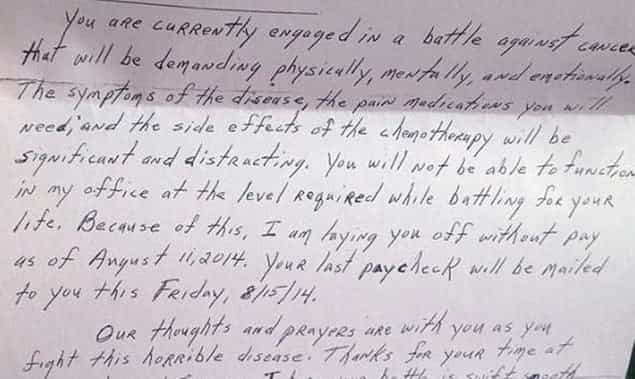 You are currently engaged in a battle against cancer
that will be demanding physically, mentally, and emotionally.
The symptoms of the disease, the pain medications you will
need, and the side effects of the chemotherapy will be
significant and distracting. You will not be able to function
in my office at the level required while battling for your
life. Because of this, I am laying you off without pay
as of August 11, 2014. Your last paycheck will be mailed
to you this Friday, 8/15/14.
Our thoughts and prayers are with you as you
fight this horrible disease. Thanks for your time at
I hope your battle is swift, smooth